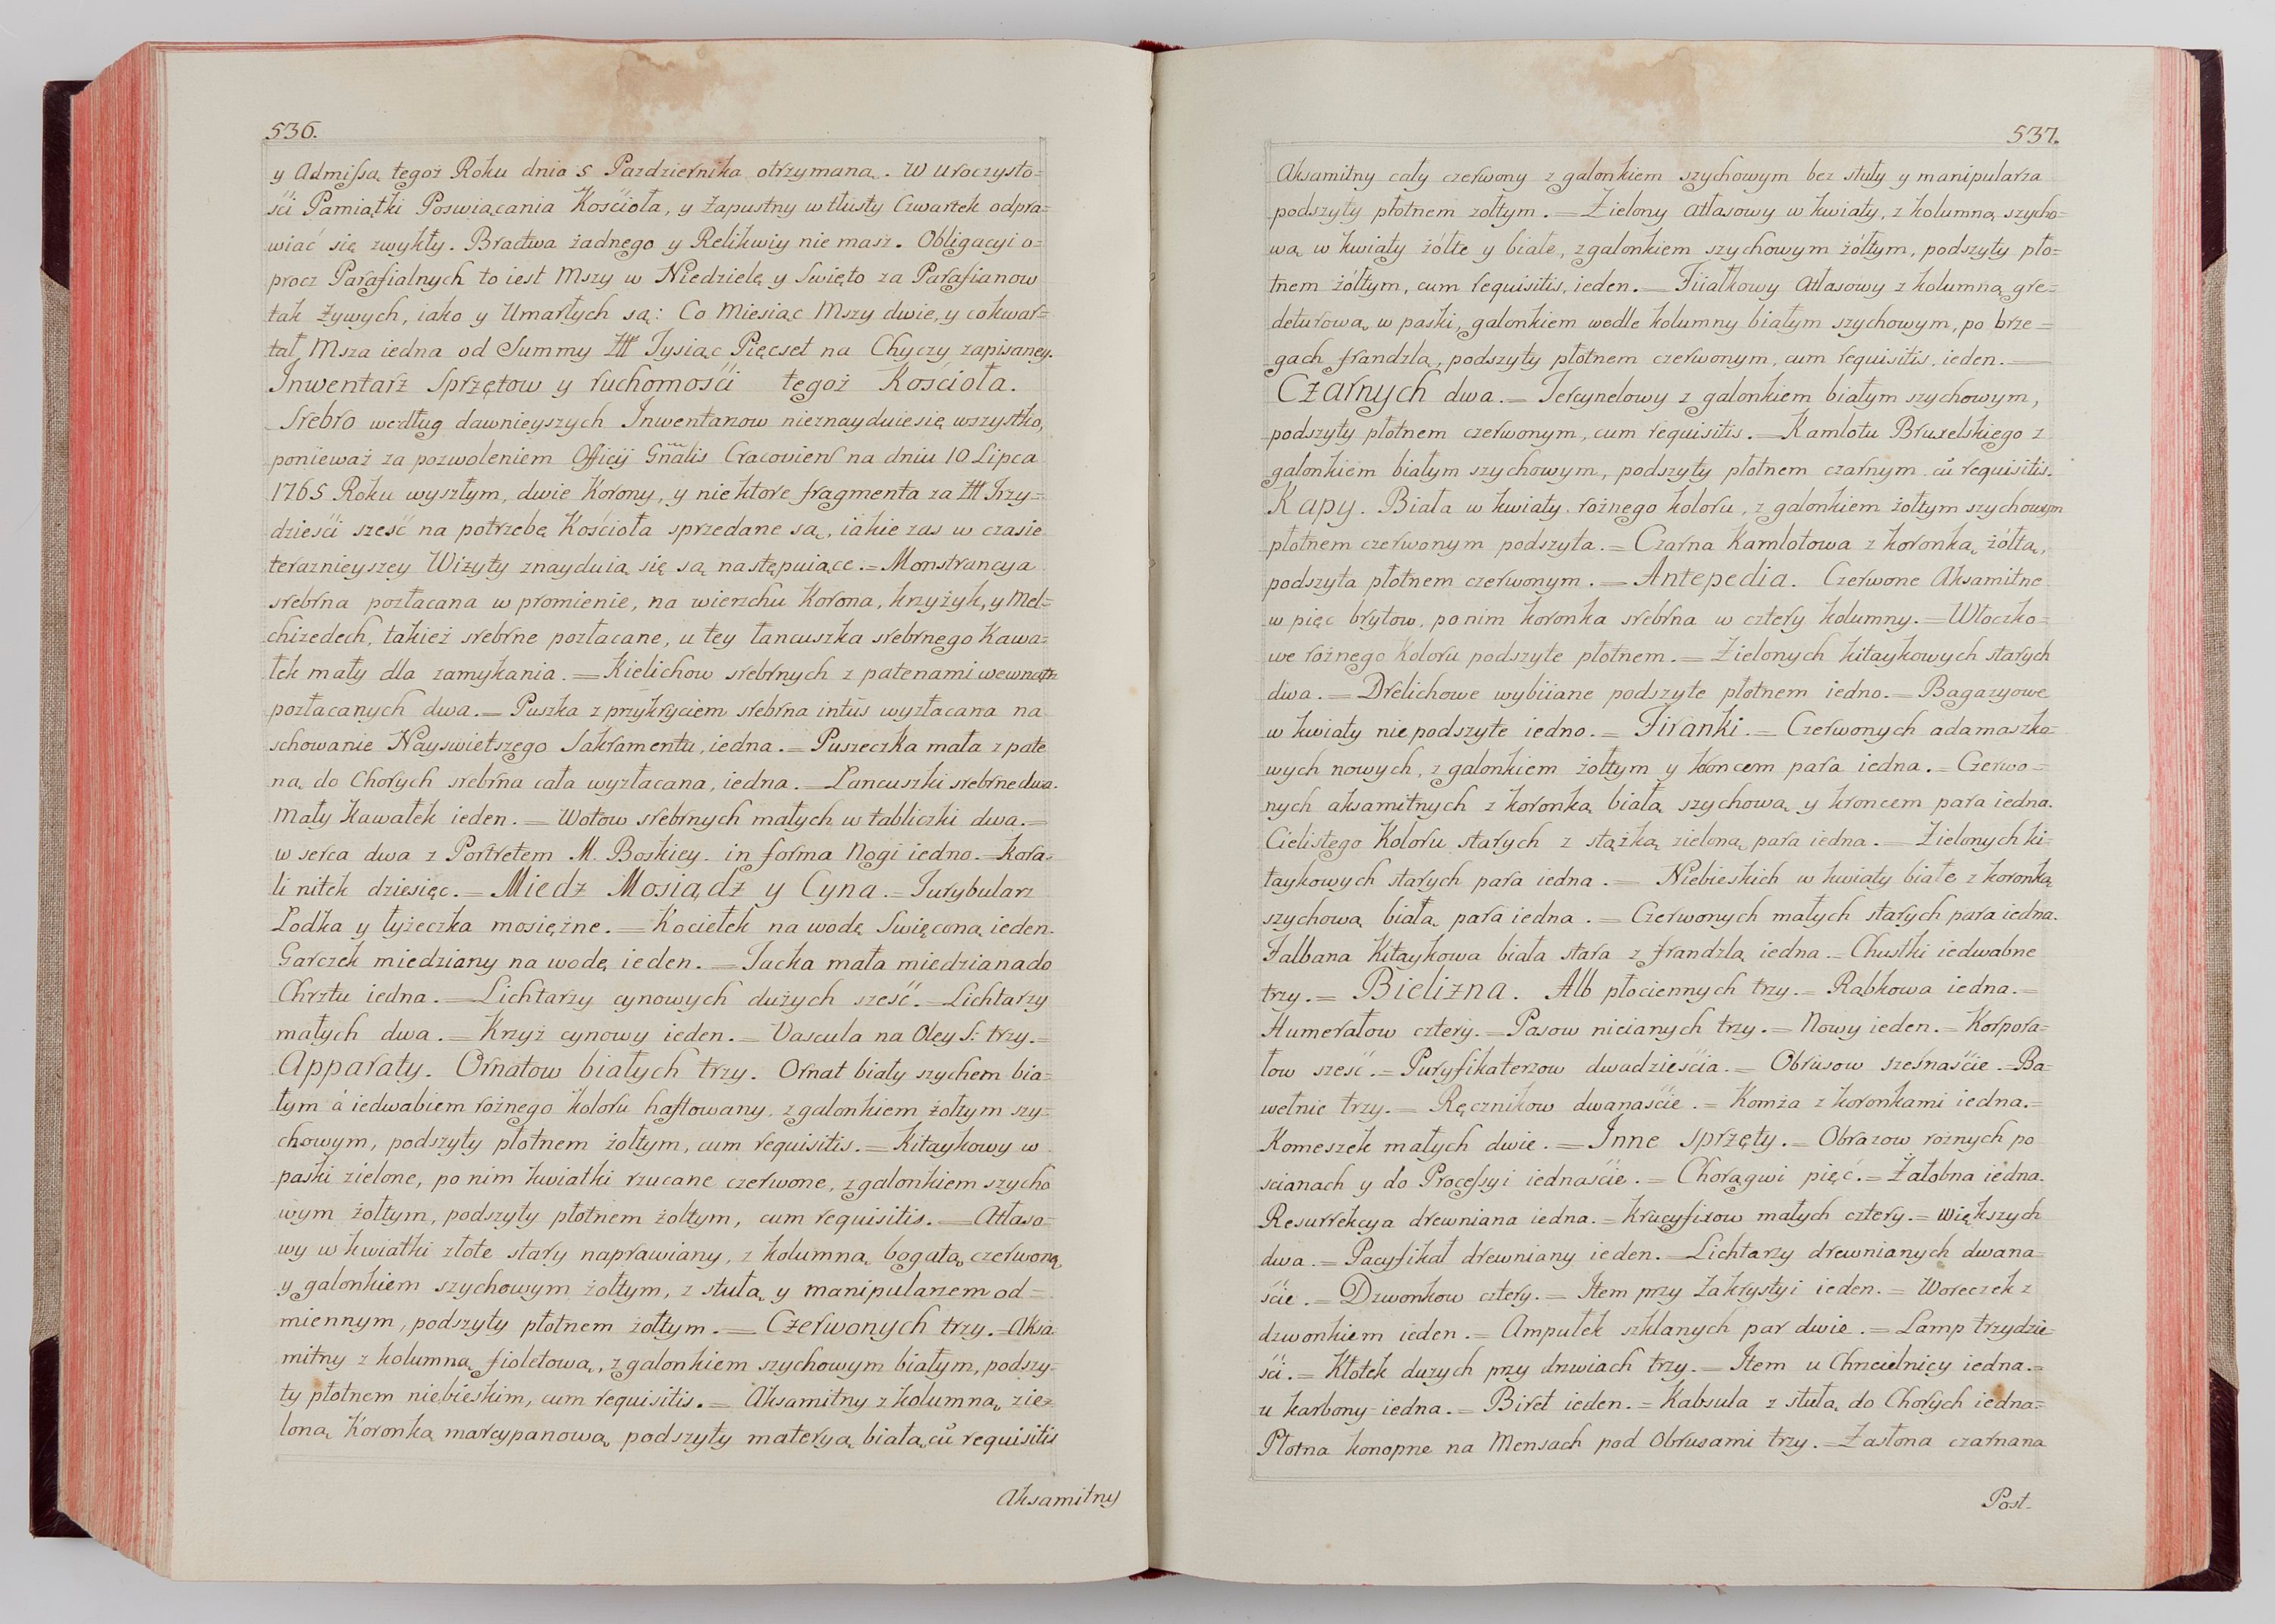 536.
y Admissą tegoż Roku dnia 5 Pazdziernika otrzymaną. W uroczysto=
ści Pamiątki Poswiącania Kościoła, y Zapustny w tłusty Czwartek odpra=
wiać się zwykły. Bractwa żadnego y Relikwiy nie masz. Obligacyi o=
procz Parafialnych to iest Mszy w Niedzielę y Swięto za Parafianow
tak Żywych, iako y Umarłych są: Co Miesiąc Mszy dwie, y co kwar=
tał Msza iedna od Summy Tysiąc Pięcset na Chyczy zapisaney.
Inwentarz Sprzętow y ruchomości tegoż Kościoła.
Srebro według dawnieyszych Inwentarzow nieznayduie się wszystko,
ponieważ za pozwoleniem Officij Gñalis Cracovien na dniu 10 Lipca
1765 Roku wyszłym, dwie Korony, y niektore fragmenta za Trzy=
dzieści sześć na potrzebę Kościoła sprzedane są, iakie zas w czasie
teraznieyszey Wizyty znayduią się są następuiące. = Monstrancya
srebrna pozłacana w promienie, na wierzchu Korona, krzyżyk, y Mel=
chizedech, takież srebrne pozłacane, u tey łancuszka srebrnego Kawa=
łek mały dla zamykania. = Kielichow srebrnych z patenami wewnątrz
pozłacanych dwa. = Puszka z przykryciem srebrna intùs wyzłacana na
schowanie Nayswietszego Sakramentu, iedna. = Puszeczka mała z pate
ną do Chorych srebrna cała wyzłacana, iedna. = Łancuszki srebrne dwa.
Mały Kawałek ieden. = Wotow srebrnych małych w tabliczki dwa. =
w serca dwa z Portretem M. Boskiey. in forma Nogi iedno. = Kora=
li nitek dziesięc. = Miedz Mosiądz y Cyna. = Turybularz
Łodka y łyżeczka mosiężne. = Kociełek na wodę Swięconą ieden.
Garczek miedziany na wodę ieden. = Tacka mała miedziana do
Chrztu iedna. = Lichtarzy cynowych dużych sześć. = Lichtarzy
małych dwa. = Krzyż cynowy ieden. = Vascula na Oley S. trzy. =
Apparaty. Ornatow białych trzy. Ornat biały szychem bia=
łym á iedwabiem rożnego koloru haftowany, z galonkiem żołtym szy=
chowym, podszyty płotnem żołtym, cum requisitis. = Kitaykowy w
paski zielone, po nim kwiatki rzucane czerwone, z galonkiem szycho
wym żołtym, podszyty płotnem żołtym, cum requisitis. = Atłaso=
wy w kwiatki złote stary naprawiany, z kolumną bogatą czerwoną
y galonkiem szychowym żołtym, z stułą y manipularzem od=
miennym, podszyty płotnem żołtym. = Czerwonych trzy. = Aksa
mitny z kolumną fioletową, z galonkiem szychowym białym, podszy=
ty płotnem niebieskim, cum requisitis. = Aksamitny z kolumną zie=
loną Koronką marcypanową podszyty materyą białą, cũ requisitis
Aksamitny
537.
Aksamitny cały czerwony z galonkiem szychowym bez stuły y manipularza
podszyty płotnem zołtym. = Zielony atłasowy w kwiaty, z kolumną szycho=
wą w kwiaty żółte y białe, z galonkiem szychowym żółtym, podszyty pło=
tnem żółtym, cum requisitis, ieden. = Fiiałkowy Atłasowy z kolumną gre=
deturową w paski, galonkiem wedle kolumny białym szychowym, po brze=
gach frandzlą, podszyty płotnem czerwonym, cum requisitis, ieden. —
Czarnych dwa. = Tercynelowy z galonkiem białym szychowym,
podszyty płotnem czerwonym, cum requisitis. = Kamlotu Bruxelskiego z
galonkiem białym szychowym, podszyty płotnem czarnym cũ requisitis.
Kapy. Biała w kwiaty rożnego koloru, z galonkiem żołtym szychowym
płotnem czerwonym podszyta. = Czarna Kamlotowa z koronką żółtą,
podszyta płotnem czerwonym. = Antepedia. Czerwone Aksamitne
w pięc brytow, po nim koronka srebrna w cztery kolumny. = Włoczko=
we rożnego Koloru podszyte płotnem. = Zielonych kitaykowych starych
dwa. = Drelichowe wybiiane podszyte płotnem iedno. = Bagazyowe
w kwiaty nie podszyte iedno. = Firanki. = Czerwonych adamaszko=
wych nowych, z galonkiem żołtym y kroncem para iedna. = Czerwo=
nych aksamitnych z koronką białą szychową y kroncem para iedna.
Cielistego Koloru starych z stążką zieloną para iedna. = Zielonych ki=
taykowych starych para iedna. = Niebieskich w kwiaty białe z koronką
szychową białą para iedna. = Czerwonych małych starych para iedna.
Falbana Kitaykowa biała stara z frandzlą iedna. = Chustki iedwabne
trzy. = Bielizna. Alb płociennych trzy. = Rąbkowa iedna. =
Humerałow cztery. = Pasow nicianych trzy. = Nowy ieden. = Korpora=
łow sześć. = Puryfikaterzow dwadzieścia. = Obrusow szesnaście. = Ba=
wełnic trzy. = Ręcznikow dwanaście. = Komża z koronkami iedna. =
Komeszek małych dwie. = Inne sprzęty. = Obrazow rożnych po
scianach y do Processyi iednaście. = Chorągwi pięć. = Żałobna iedna.
Resurrekcya drewniana iedna. = Krucyfixow małych cztery. = większych
dwa. = Pacyfikał drewniany ieden. = Lichtarzy drewnianych dwana=
ście. = Dzwonkow cztery. = Item przy Zakrystyi ieden. = Woreczek z
dzwonkiem ieden. = Ampułek szklanych par dwie. = Lamp trzydzie
ści. = Kłotek duzych przy drzwiach trzy. = Item u Chrzcielnicy iedna. =
u karbony iedna. = Biret ieden. = Kabsula z stułą do Chorych iedna. =
Płotna konopne na Mensach pod Obrusami trzy. = Zasłona czarna na
Post.